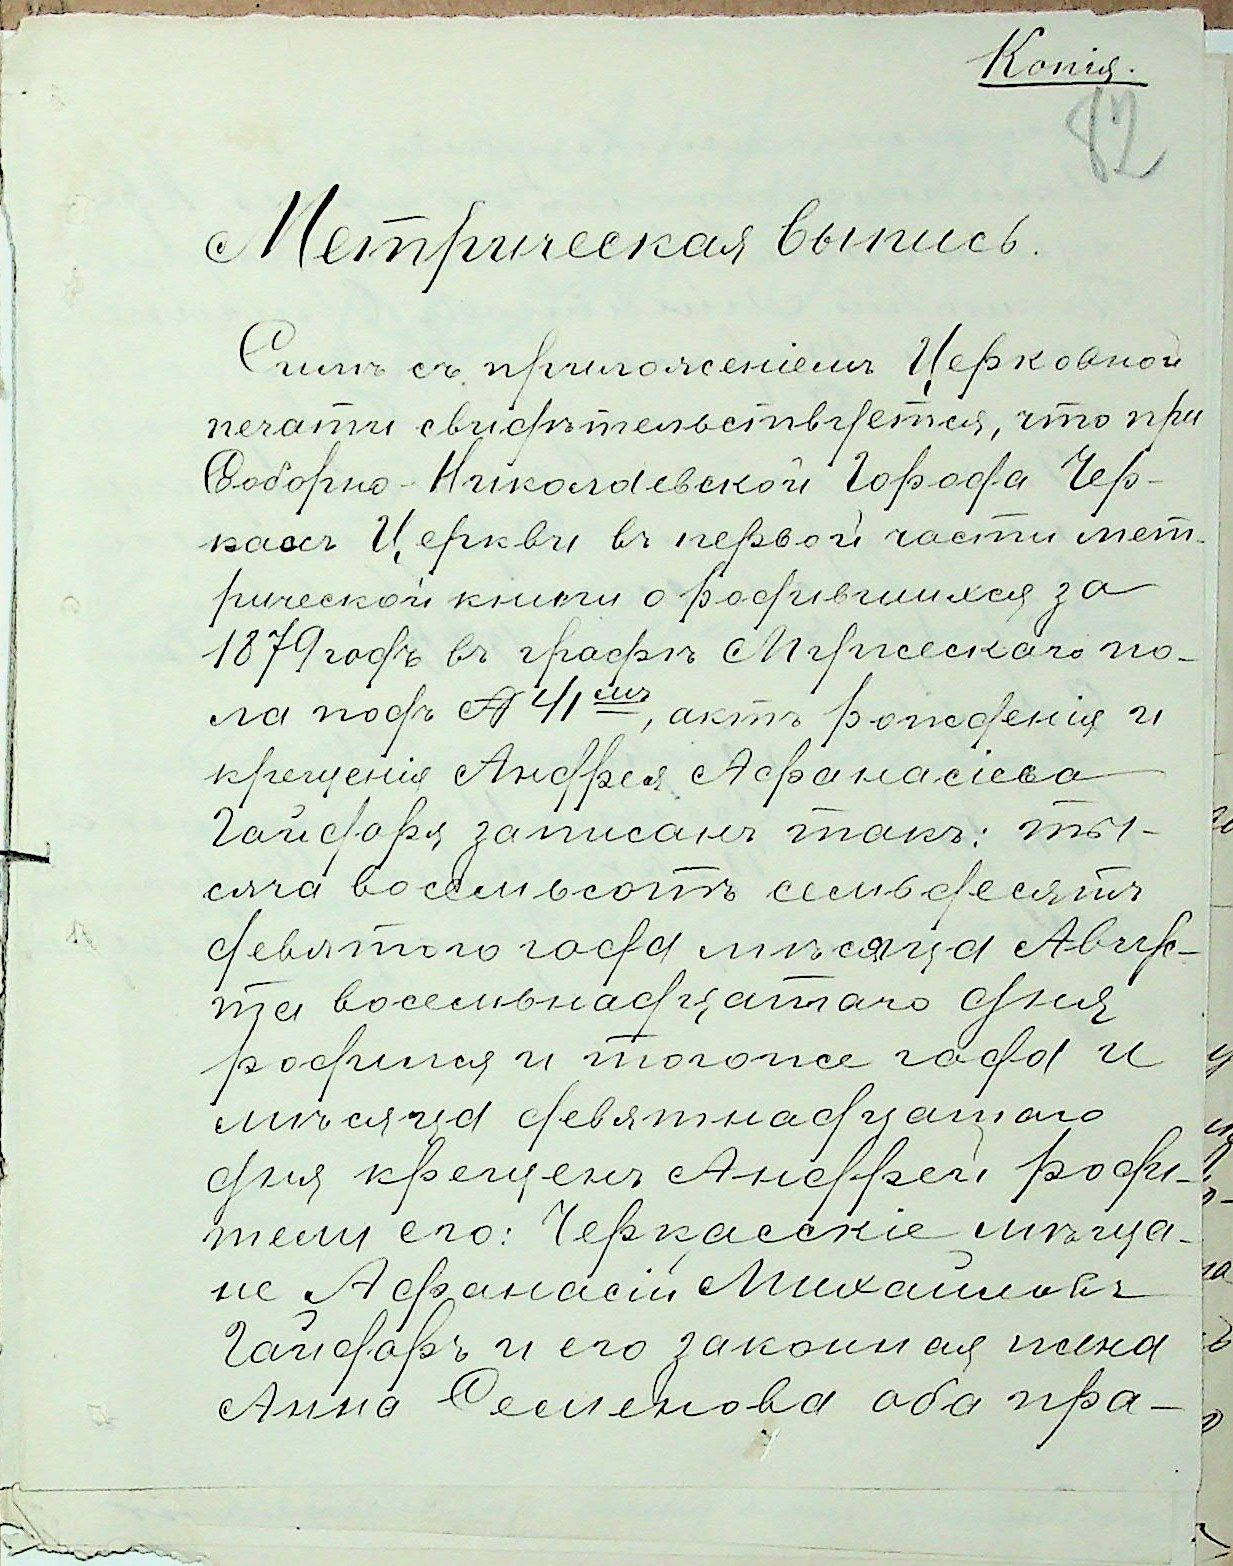 Копія.
82
Метрическая выпись.
Симъ съ приложеніемъ Церковной
печати свидѣтельствуется, что при
Соборно-Николаевской Города Чер-
касъ Церкви въ первой части мет-
рической книги о родившихся за
1879 годъ въ графѣ Мужескаго по-
ла подъ № 41мъ, актъ рожденія и
крещенія Андрея Афанасіева
Гайдаря записанъ такъ: ты-
сяча восемьсотъ семьдесятъ
девятого года мѣсяца Авгус-
та восемьнадцатаго дня
родился и тогоже года и
мѣсяца девятнадцатаго
дня крещенъ Андрей роди-
тели его: Черкасскіе мѣща-
не Афанасій Михайловъ
Гайдаръ и его законная жена
Анна Семенова оба пра-